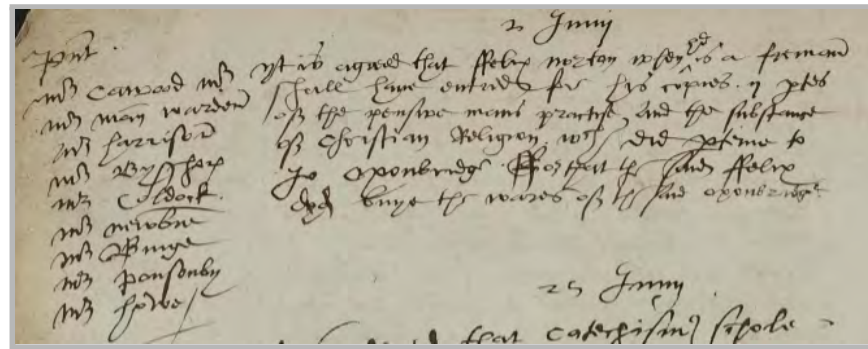 2 Junij
pnt.
mr Cawood mr
mr man warden
mr harrison
mr Bysshop
mr Coldock
mr newbrie
mr Binge
mr ponsonby
mr howe
yt is agreed that ffelix norton when he is a freman
shall have entred for his copies. ij ptes
of the pensive mans practise, and the substance
of Christian Religion wch did pteine to
Jo Oxonbridge. ffor that the said ffelix
did buye the wares of the said oxonbridge
25 Junij
that Catechismus schole